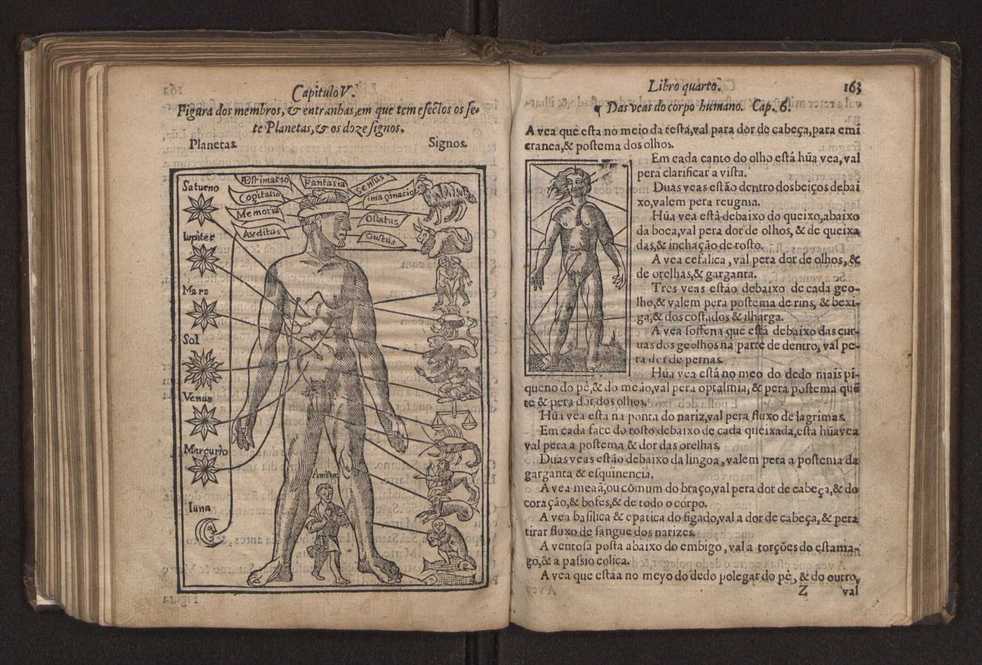 Capitulo V.
Figura dos membros, & entranhas, em que tem efectos os se-
te Planetas, & os doze signos.
Planetas. Signos.
Satueno
Iupiter
Mars
Sol
Venus
Marcurio
luna
Æstimatio
Fantasia
Census
Copitatia
imaginacio
Memoria
Olfatus
Auditus
Gustus
Libro quarto. 163
¶ Das veas do corpo humano. Cap. 6.
A vea que esta no meio da testa, val para dor de cabeça, para emi
cranea, & postema dos olhos.
Em cada canto do olho està hũa vea, val
pera clarificar a vista.
Duas veas estão dentro dos beiços debai
xo, valem pera reugma.
Hũa vea està debaixo do queixo, abaixo
da boca, val pera dor de olhos, & de queixa
das, & inchação de rosto.
A vea cefalica, val pera dor de olhos, &
de orelhas, & garganta.
Tres veas estão debaixo de cada geo-
lho, & valem pera postema de rins, & bexi-
ga, & dos costados & ilharga.
A vea soffena que està debaixo das cur-
uas dos geolhos na parte de dentro, val pe-
ra dor de pernas.
Hũa vea està no meo do dedo mais pi-
queno do pè, & do meão, val pera optalmia, & pera postema quẽ
te & pera dor dos olhos.
Hũa vea esta na ponta do nariz, val pera fluxo de lagrimas.
Em cada face do rosto debaixo de cada queixada, esta hũa vea
val pera a postema & dor das orelhas.
Duas veas estão debaixo da lingoa, valem pera a postema da
garganta & esquinencia.
A vea meaã, ou cõmum do braço, val pera dor de cabeça, & do
coração, & bofes, & de todo o corpo.
A vea basilica & epatica do figado, val a dor de cabeça, & pera
tirar fluxo de sangue dos narizes.
A ventosa posta abaixo do embigo, val a torções do estama-
go, & a passio colica.
A vea que estaa no meyo do dedo polegar do pè, & do outro,
Z val